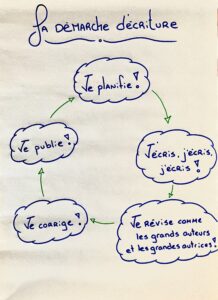 La démarche d'écriture
Je planifie !
J'écris, j'écris,
j'écris !
Je révise comme
les grands auteurs
et les grandes autrices !
Je corrige !
Je publie !